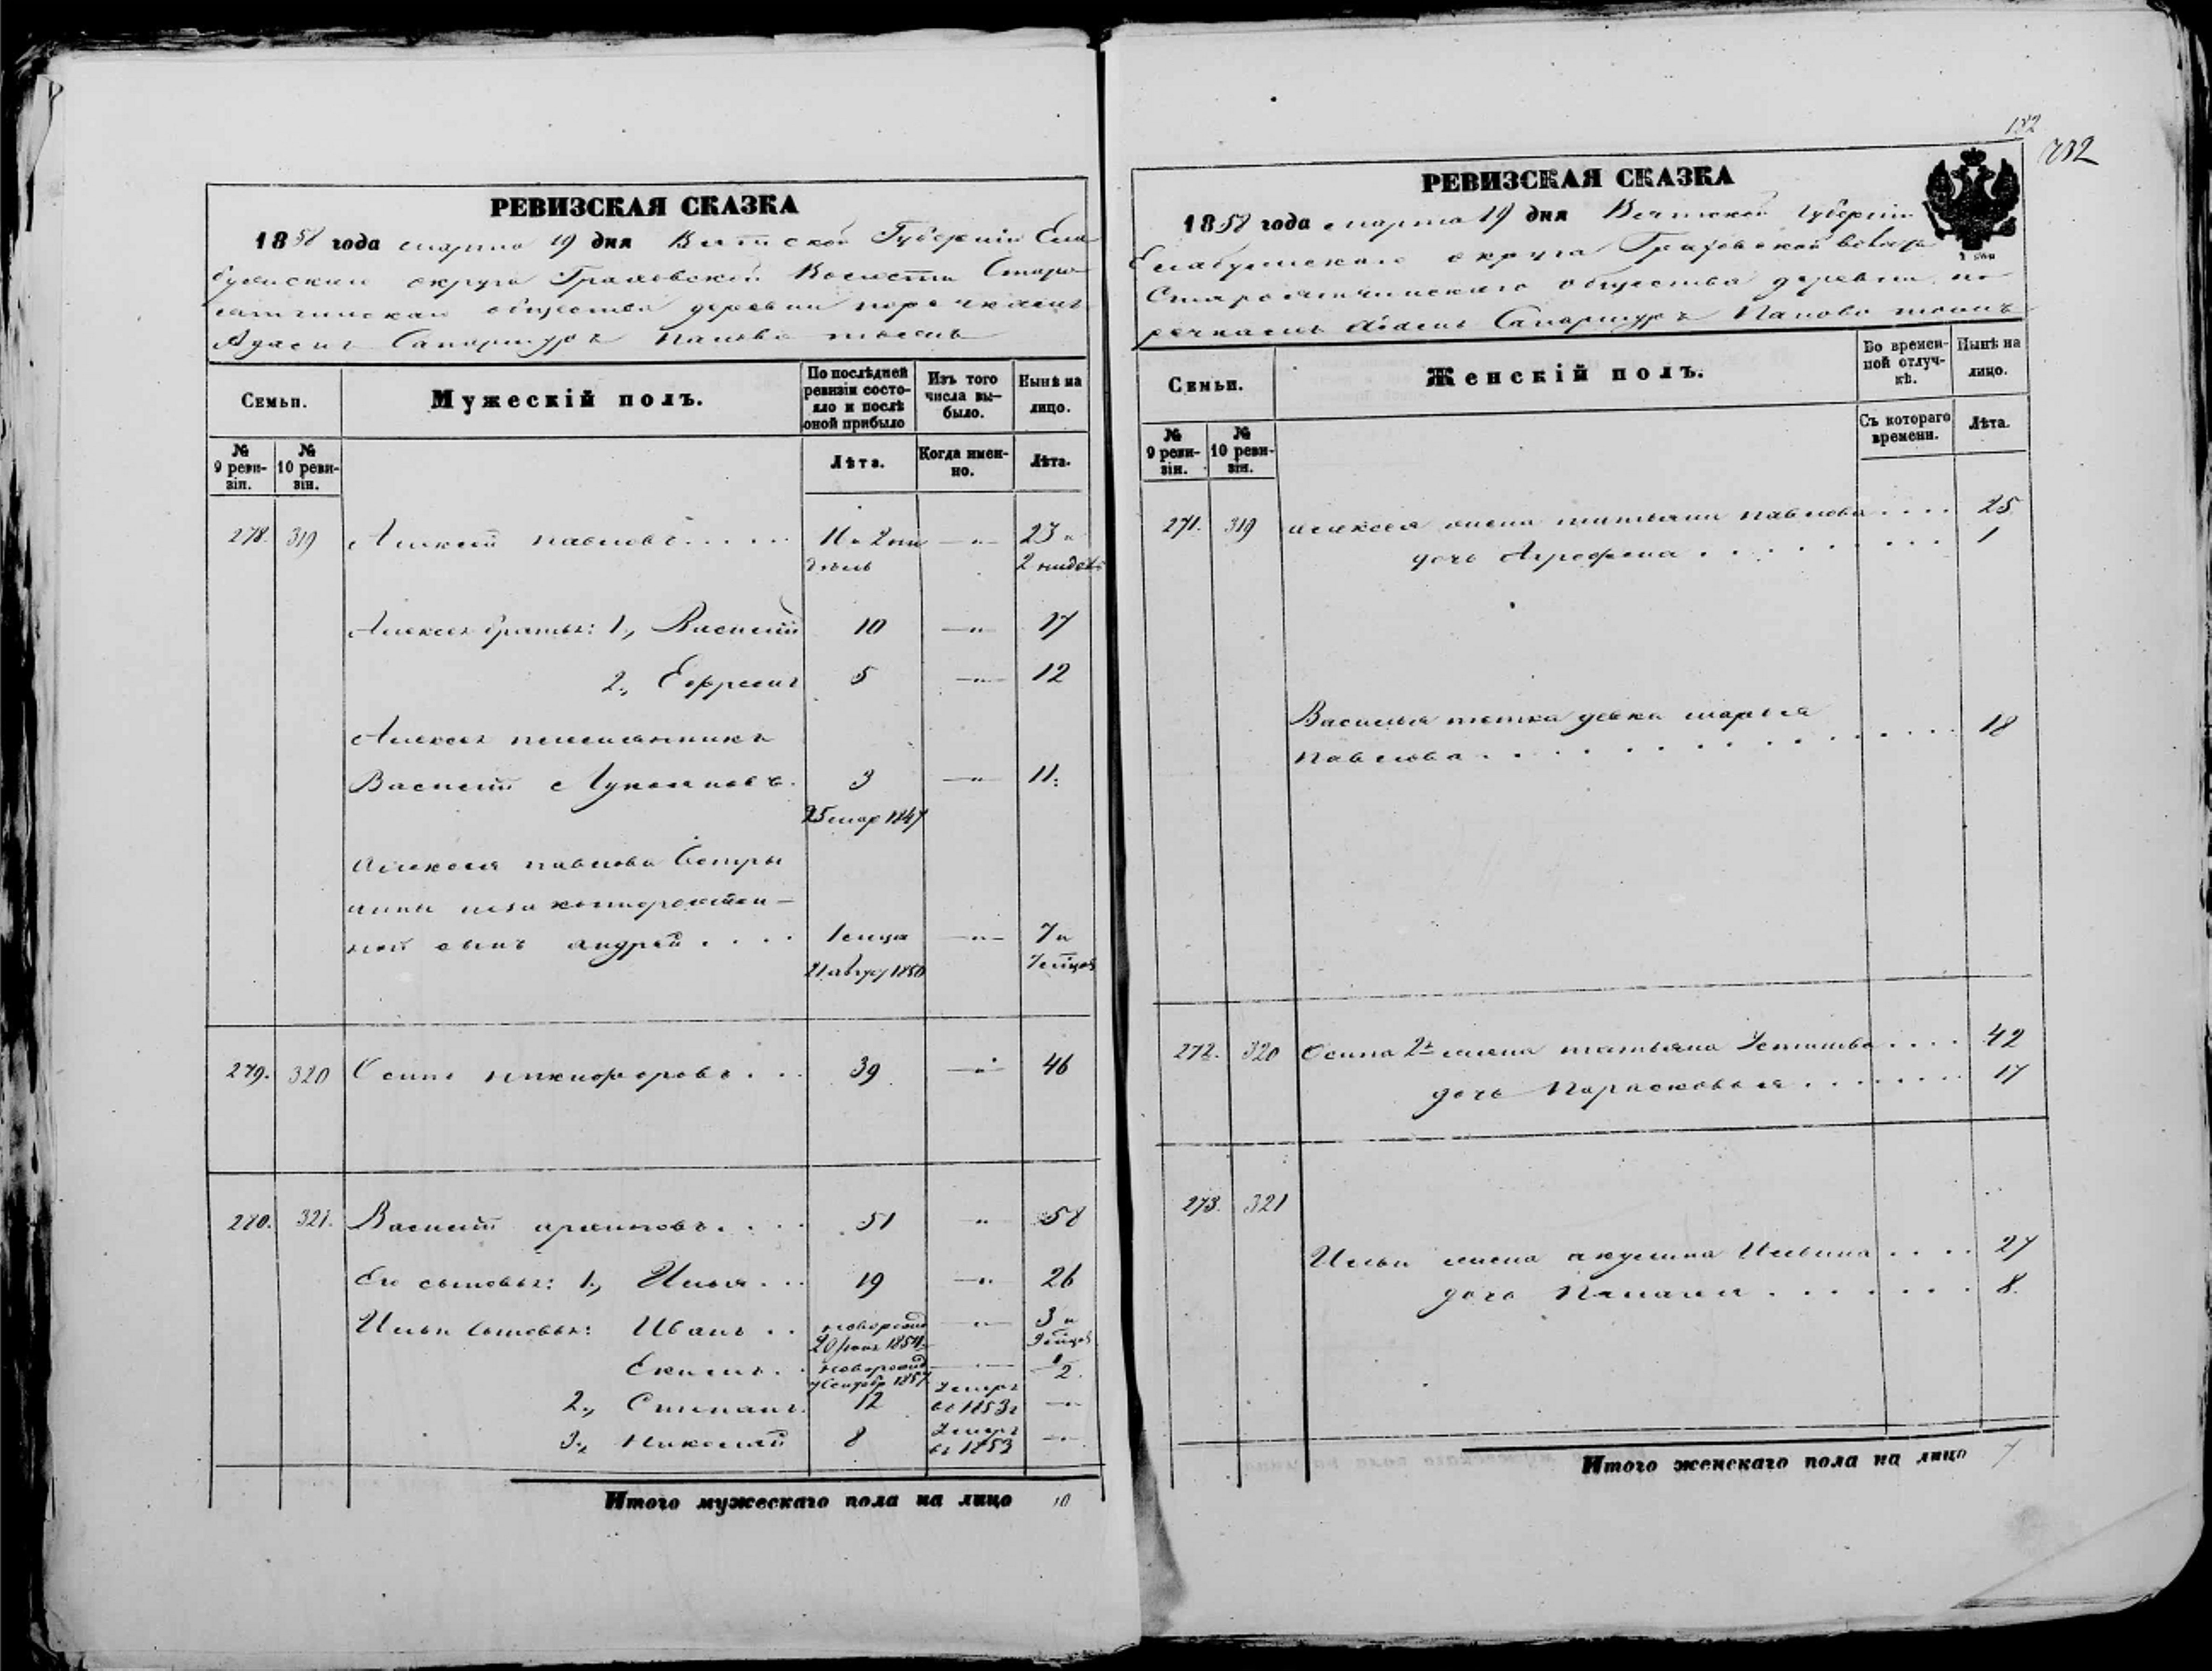 РЕВИЗСКАЯ СКАЗКА
1858 года марта 19 дня Вятской Губернiи Ела
бужскаго округа Граховской Волости Старо
общества деревни по речкамъ
Адамъ Сапаршуръ Паново тожъ
Семьи.
Мужескiй полъ.
По послѣдней ревизiи состо-
яло и послѣ оной прибыло
Изъ того числа вы-
было.
Нынѣ на лицо.
№ 9 реви-
зiи.
№ 10 реви-
зiи.
Лѣта.
Когда имен-
но.
Лѣта.
278. 319 Алексей Павловъ..... 23 и
2 недели
Алексея братья: 1., Василiй 10 —"— 17
2., Ефремъ 5 —"— 12
Алексея племянникъ
Василiй Лукояновъ. 3 —"— 11.
25 мар 1847
Алексея Павлова сестры
незаконнорожден-
ной сынъ Андрей.... —"— 7 и
21 август 1850 7 мѣцов
279. 320 Осипъ Никифоровъ... 39 —"— 46
280. 321. Василiй Архиповъ.... 51 " 58
Его сыновья: 1., Илья... 19 —"— 26
Ильи сыновья: Иванъ.. новорожд —"— 3 и
1854 9 мѣцов
Екимъ. новорожд — ½
7 Сентябр 1857
2., Степанъ. 12 умеръ въ 1853 г —"—
3., Николай 8 умеръ въ 1853 —"—
Итого мужескаго пола на лицо 10
132
132
РЕВИЗСКАЯ СКАЗКА
1858 года марта 19 дня Вятской Губернiи
Елабужскаго округа Граховской волости
общества деревни по
речкамъ Адамъ Сапаршуръ Паново тожъ
Семьи.
Женскiй полъ.
Во времен-
ной отлуч-
кѣ.
Нынѣ на лицо.
№ 9 реви-
зiи.
№ 10 реви-
зiи.
Съ котораго времени.
Лѣта.
271. 319 Алексея жена Татьяна Павлова.... 25
дочь Агрофена......... 1
Василья тетка девка Марья
Павлова............. 18
272. 320 Осипа 2я жена Татьяна Устинова.... 42
дочь Парасковья....... 17
273. 321
Ильи жена Акулина Ильина.... 27
дочь Пелагея....... 8.
Итого женскаго пола на лицо 7